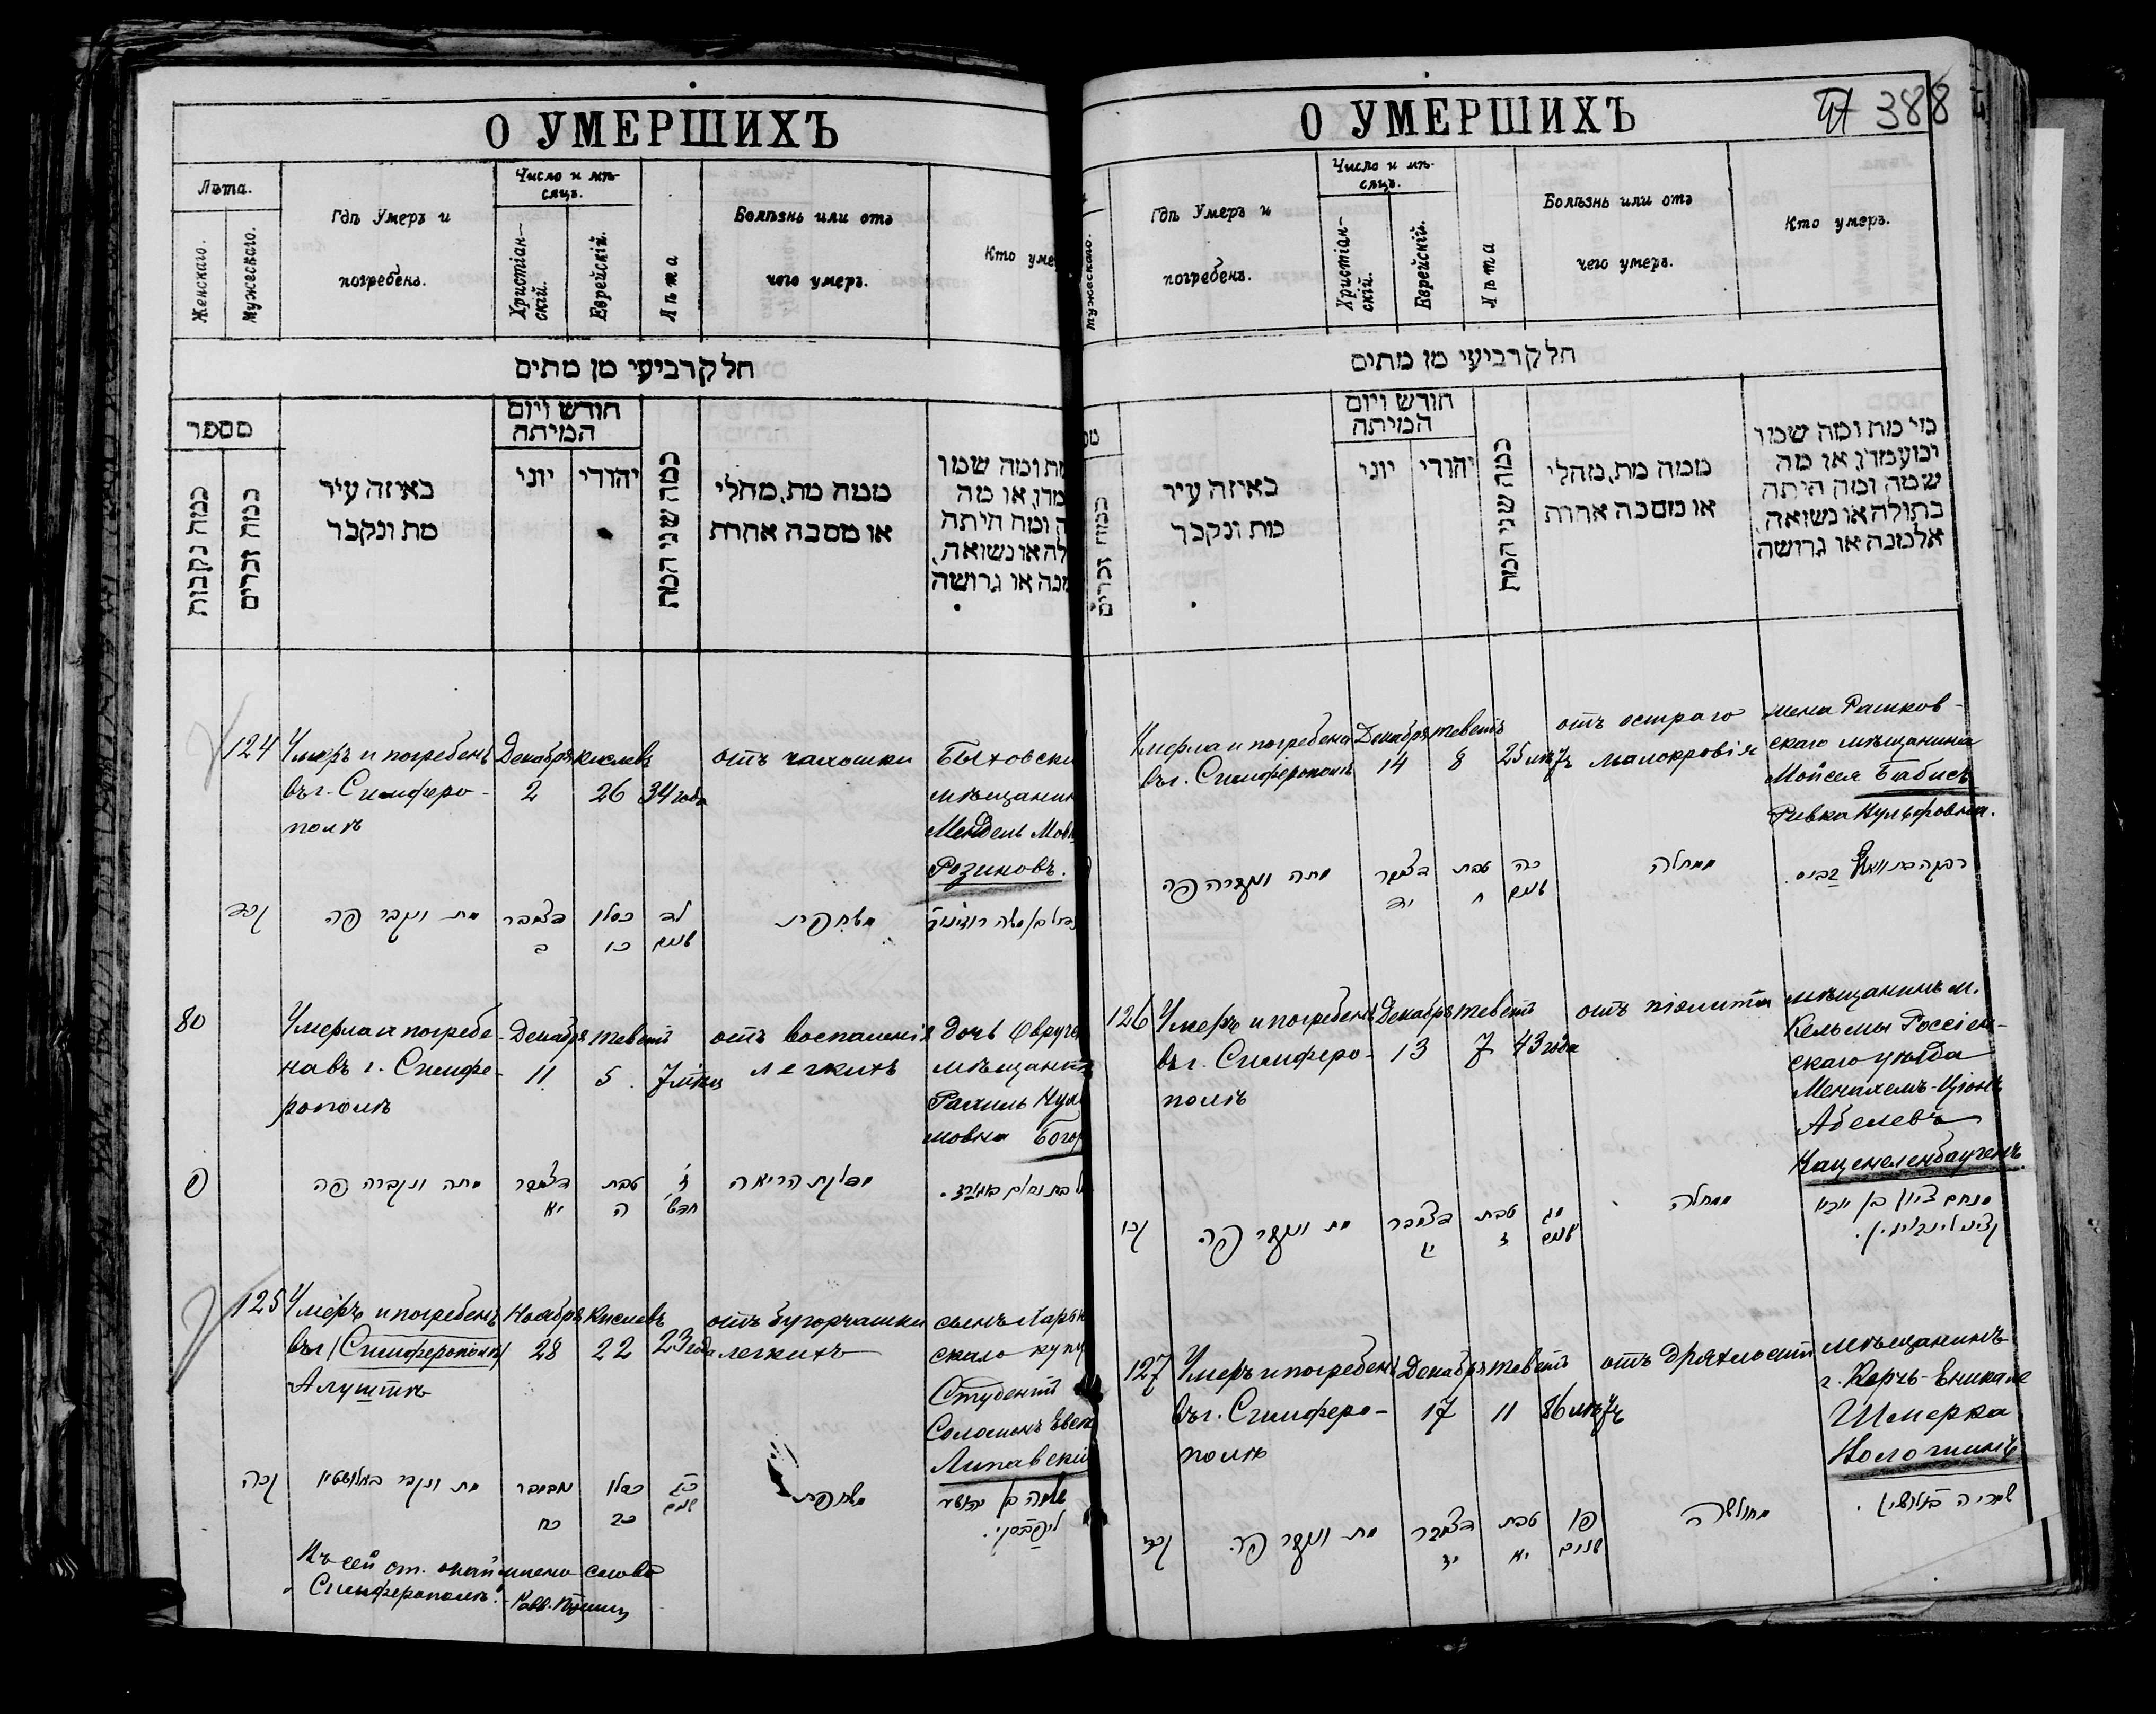 О УМЕРШИХЪ
Лѣта.
Женскаго.
Мужескаго.
Гдѣ Умеръ и
погребенъ.
Число и мѣ-
сяцъ.
Христіан-
скій.
Еврейскій.
Лѣта
Болѣзнь или отъ
чего умеръ.
Кто уме
חלק רביעי מן מתים
מספר
כמה נקבות
כמה זכרים
באיזה עיר
מת ונקבר
חודש ויום
המיתה
יוני
יהודי
כמה שני המת
ממה מת, מחלי
או מסבה אחרת
מת ומה שמו
מה
ומה היתה
לה או נשואה,
מנה או גרושה
124 Умеръ и погребенъ
въ г. Симферо-
полѣ
Декабря
2
Кислевъ
26
34 года
отъ чахотки
Быховскі
мѣщанин
Мендель Мов
Розиновъ.
קכד
מת ונקבר פה
דצמבר
ב
כסלו
כו
לד
שנים
משחפת
בן משה
80
Умерла и погребе-
на въ г. Симфе-
рополѣ
Декабря
11
Теветъ
5
7 мѣц
отъ воспаленія
легкихъ
дочь Овруч
мѣщанин
Рахиль Нух
мовна Бого
פ
מתה ונקברה פה
דצמבר
יא
טבת
ה
ז
חדש'
מדלקת הריאה
בת נחום
125 Умеръ и погребенъ
въ г. (Симферополѣ)
Алуштѣ
Ноября
28
Кислевъ
22
23 года
отъ бугорчатки
легкихъ
сынъ Харьк
скаго купц
Студентъ
Соломонъ Евсе
Липавскій
קכה
מת ונקבר באלושטא
נאבמבר
כח
כסלו
כב
כג
שנים
משחפת
שלמה בן
Къ сей ст.
Симферополѣ".
О УМЕРШИХЪ
388
Мужескаго.
Гдѣ Умеръ и
погребенъ.
Число и мѣ-
сяцъ.
Христіан-
скій.
Еврейскій.
Лѣта
Болѣзнь или отъ
чего умеръ.
Кто умеръ.
חלק רביעי מן מתים
כמה זכרים
באיזה עיר
מת ונקבר
חודש ויום
המיתה
יוני
יהודי
כמה שני המת
ממה מת, מחלי
או מסבה אחרת
מי מת ומה שמו
ומעמדו, או מה
שמה ומה היתה
בתולה או נשואה,
אלמנה או גרושה
Умерла и погребена
въ г. Симферополѣ
Декабря
14
Теветъ
8
25 лѣтъ
отъ остраго
малокровія
жена Рашков-
скаго мѣщанина
Мойсея Бабисъ
Ривка Вульфовна.
מתה ונקברה פה
דצמבר
יד
טבת
ח
כה
שנים
מחלה
רבקה בת וואלף באביס.
126 Умеръ и погребенъ
въ г. Симферо-
полѣ
Декабря
13
Теветъ
7
43 года
отъ піэлита
мѣщанинъ м.
Кельмы Россіен-
скаго уѣзда
Менахемъ-Ціонъ
Абелевъ
Каценеленбаугенъ.
קכו
מת ונקבר פה
דצמבר
יג
טבת
ז
מג
שנים
מחלה
מנחם ציון בן
127 Умеръ и погребенъ
въ г. Симферо-
полѣ
Декабря
17
Теветъ
11
86 лѣтъ
отъ дряхлости
мѣщанинъ
г. Керчь-Еникале
Шмерка
Воложинъ
קכז
מת ונקבר פה.
דצמבר
יז
טבת
יא
פו
שנים
מחולשה
שמריה וואלאזין.